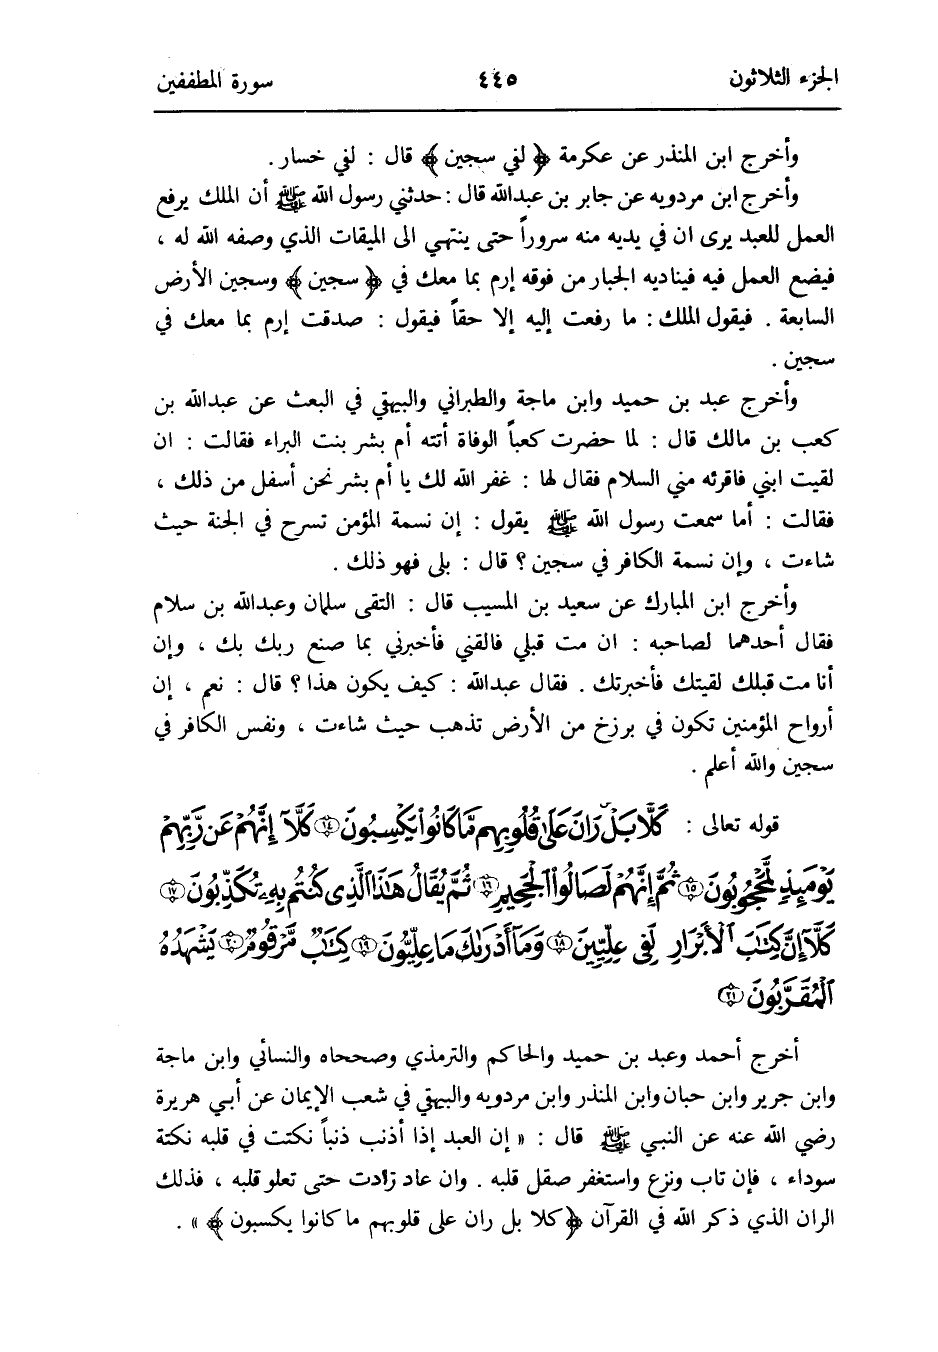 الجزء الثلاثون ٤٤٥ سورة المطففين
وأخرج ابن المنذر عن عكرمة ﴿ لفي سجين ﴾ قال : لفي خسار .
وأخرج ابن مردويه عن جابر بن عبدالله قال : حدثني رسول الله ﷺ أن الملك يرفع
العمل للعبد يرى ان في يديه منه سروراً حتى ينتهي الى الميقات الذي وصفه الله له ،
فيضع العمل فيه فيناديه الجبار من فوقه إرم بما معك في ﴿ سجين ﴾ وسجين الأرض
السابعة . فيقول الملك : ما رفعت إليه إلا حقاً فيقول : صدقت إرم بما معك في
سجين .
وأخرج عبد بن حميد وابن ماجة والطبراني والبيهقي في البعث عن عبدالله بن
كعب بن مالك قال : لما حضرت كعباً الوفاة أتته أم بشر بنت البراء فقالت : ان
لقيت ابني فاقرئه مني السلام فقال لها : غفر الله لك يا أم بشر نحن أسفل من ذلك ،
فقالت : أما سمعت رسول الله ﷺ يقول : إن نسمة المؤمن تسرح في الجنة حيث
شاءت ، وإن نسمة الكافر في سجين ؟ قال : بلى فهو ذلك .
وأخرج ابن المبارك عن سعيد بن المسيب قال : التقى سلمان وعبدالله بن سلام
فقال أحدهما لصاحبه : ان مت قبلي فالقني فأخبرني بما صنع ربك بك ، وإن
أنا مت قبلك لقيتك فأخبرتك . فقال عبدالله : كيف يكون هذا ؟ قال : نعم ، إن
أرواح المؤمنين تكون في برزخ من الأرض تذهب حيث شاءت ، ونفس الكافر في
سجين والله أعلم .
قوله تعالى : كَلَّا بَلْ رَانَ عَلَىٰ قُلُوبِهِم مَّا كَانُوا۟ يَكْسِبُونَ ۝١٤ كَلَّآ إِنَّهُمْ عَن رَّبِّهِمْ
يَوْمَئِذٍ لَّمَحْجُوبُونَ ۝١٥ ثُمَّ إِنَّهُمْ لَصَالُوا۟ ٱلْجَحِيمِ ۝١٦ ثُمَّ يُقَالُ هَٰذَا ٱلَّذِى كُنتُم بِهِۦ تُكَذِّبُونَ ۝١٧
كَلَّآ إِنَّ كِتَٰبَ ٱلْأَبْرَارِ لَفِى عِلِّيِّينَ ۝١٨ وَمَآ أَدْرَىٰكَ مَا عِلِّيُّونَ ۝١٩ كِتَٰبٌ مَّرْقُومٌ ۝٢٠ يَشْهَدُهُ
ٱلْمُقَرَّبُونَ ۝٢١
أخرج أحمد وعبد بن حميد والحاكم والترمذي وصححاه والنسائي وابن ماجة
وابن جرير وابن حبان وابن المنذر وابن مردويه والبيهقي في شعب الإيمان عن أبي هريرة
رضي الله عنه عن النبي ﷺ قال : « إن العبد إذا أذنب ذنباً نكتت في قلبه نكتة
سوداء ، فإن تاب ونزع واستغفر صقل قلبه . وان عاد زادت حتى تعلو قلبه ، فذلك
الران الذي ذكر الله في القرآن ﴿ كلا بل ران على قلوبهم ما كانوا يكسبون ﴾ » .